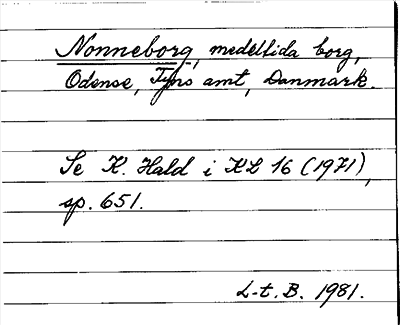 Nonneborg, medeltida borg,
Odense, Fyns amt, Danmark.
Se K. Hald i KL 16 (1971),
sp. 651.
L-t. B. 1981.